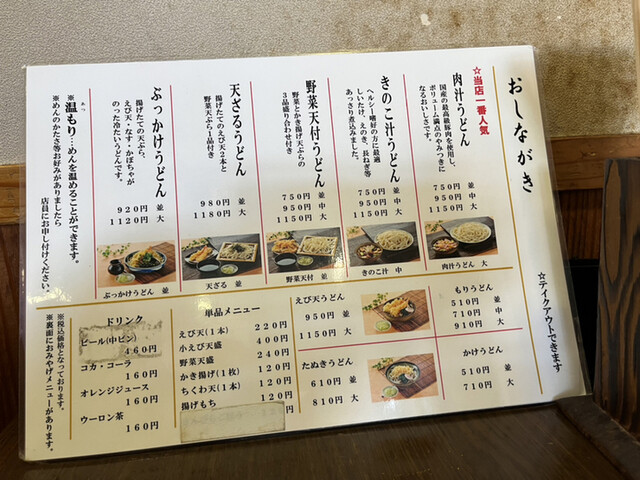 おしながき
☆テイクアウトできます
☆当店一番人気
肉汁うどん
国産の最高級豚肉を使用し、
ボリューム満点のやみつきに
なるおいしさです。
750円 並
950円 中
1150円 大
肉汁うどん 大
きのこ汁うどん
ヘルシー嗜好の方に最適
しいたけ、えのき、長ねぎ等
あっさり煮込みました。
750円 並
950円 中
1150円 大
きのこ汁 中
野菜天付うどん
野菜とかき揚げ天ぷらの
3品盛り合わせ付き
750円 並
950円 中
1150円 大
野菜天付 並
天ざるうどん
揚げたてのえび天2本と
野菜天ぷら1品付き
980円 並
1180円 大
天ざる 並
ぶっかけうどん
揚げたての天ぷら、
えび天・なす・かぼちゃが
のった冷たいうどんです。
920円 並
1120円 大
ぶっかけうどん 並
※温もり…めんを温めることができます。
※めんのかたさ等お好みがありましたら
店員にお申し付けください。
もりうどん
510円 並
710円 中
910円 大
かけうどん
510円 並
710円 大
えび天うどん
950円 並
1150円 大
たぬきうどん
610円 並
810円 大
単品メニュー
えび天(1本) 220円
小えび天盛 400円
野菜天盛 240円
かき揚げ(1枚) 120円
ちくわ天(1本) 120円
揚げもち 120円
円
ドリンク
ビール(中ビン)
460円
コカ・コーラ
160円
オレンジジュース
160円
ウーロン茶
160円
※税込価格となっております。
※裏面におみやげメニューがあります。